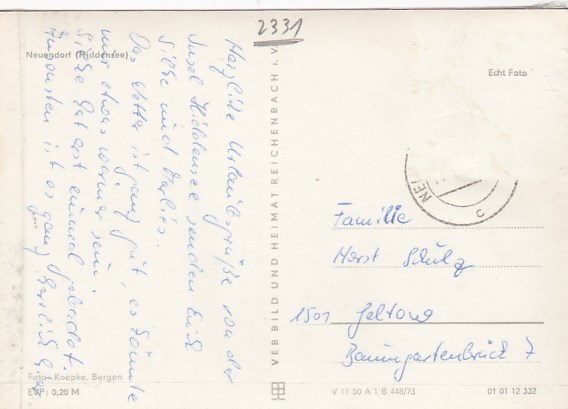 2331
Neuendorf (Hiddensee)
Herzliche Urlaubsgrüße von der
Insel Hiddensee senden Euch
Silke und
Das Wetter ist ganz gut, es könnte
nur etwas wärmer sein.
Silke hat erst einmal gebadet.
Ansonsten ist es ganz herrlich hier.
Foto: Koepke, Bergen
EVP: 0,20 M
VEB BILD UND HEIMAT REICHENBACH I. V.
Echt Foto
NE
c
Familie
Horst Schulz
1501 Geltow
Baumgartenbrück 7
V 11 30 A 1/B 448/73
01 01 12 332